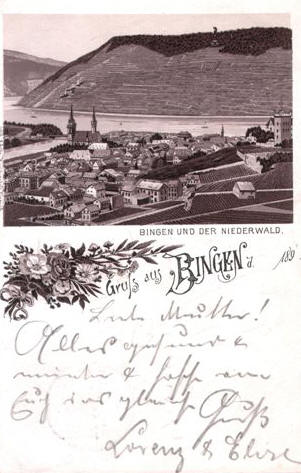 BINGEN UND DER NIEDERWALD.
Gruß aus BINGEN d. 189
Liebe Mutter!
Alles gesund &
munter & hoffe von
Euch das gleiche Gruß
Lorenz & Elise